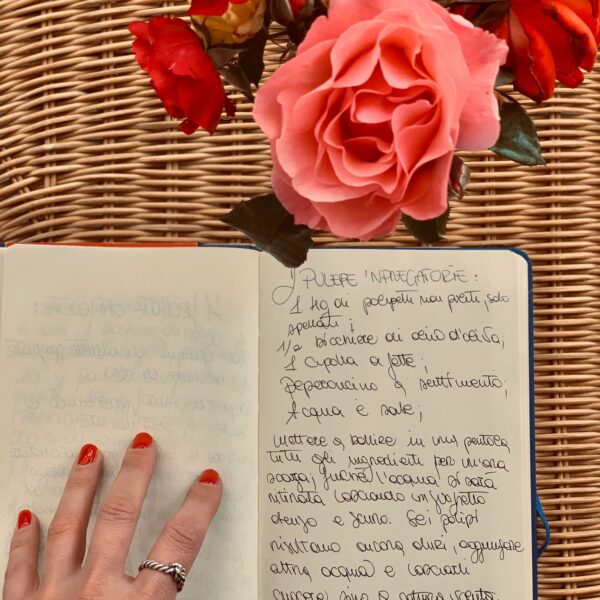 I PULEPE 'NPREGATORIE:
1 Kg di polipetti non puliti, solo
spellati;
1/2 bicchiere di olio d'oliva;
1 cipolla a fette;
Peperoncino a sentimento;
Acqua e sale;
Mettere a bollire in una pentola
tutti gli ingredienti per un'ora
scarsa; finché l'acqua si sarà
ritirata lasciando un sughetto
denso e scuro. Se i polipi
risultano ancora duri, aggiungere
altra acqua e lasciarli
cuocere fino a cottura